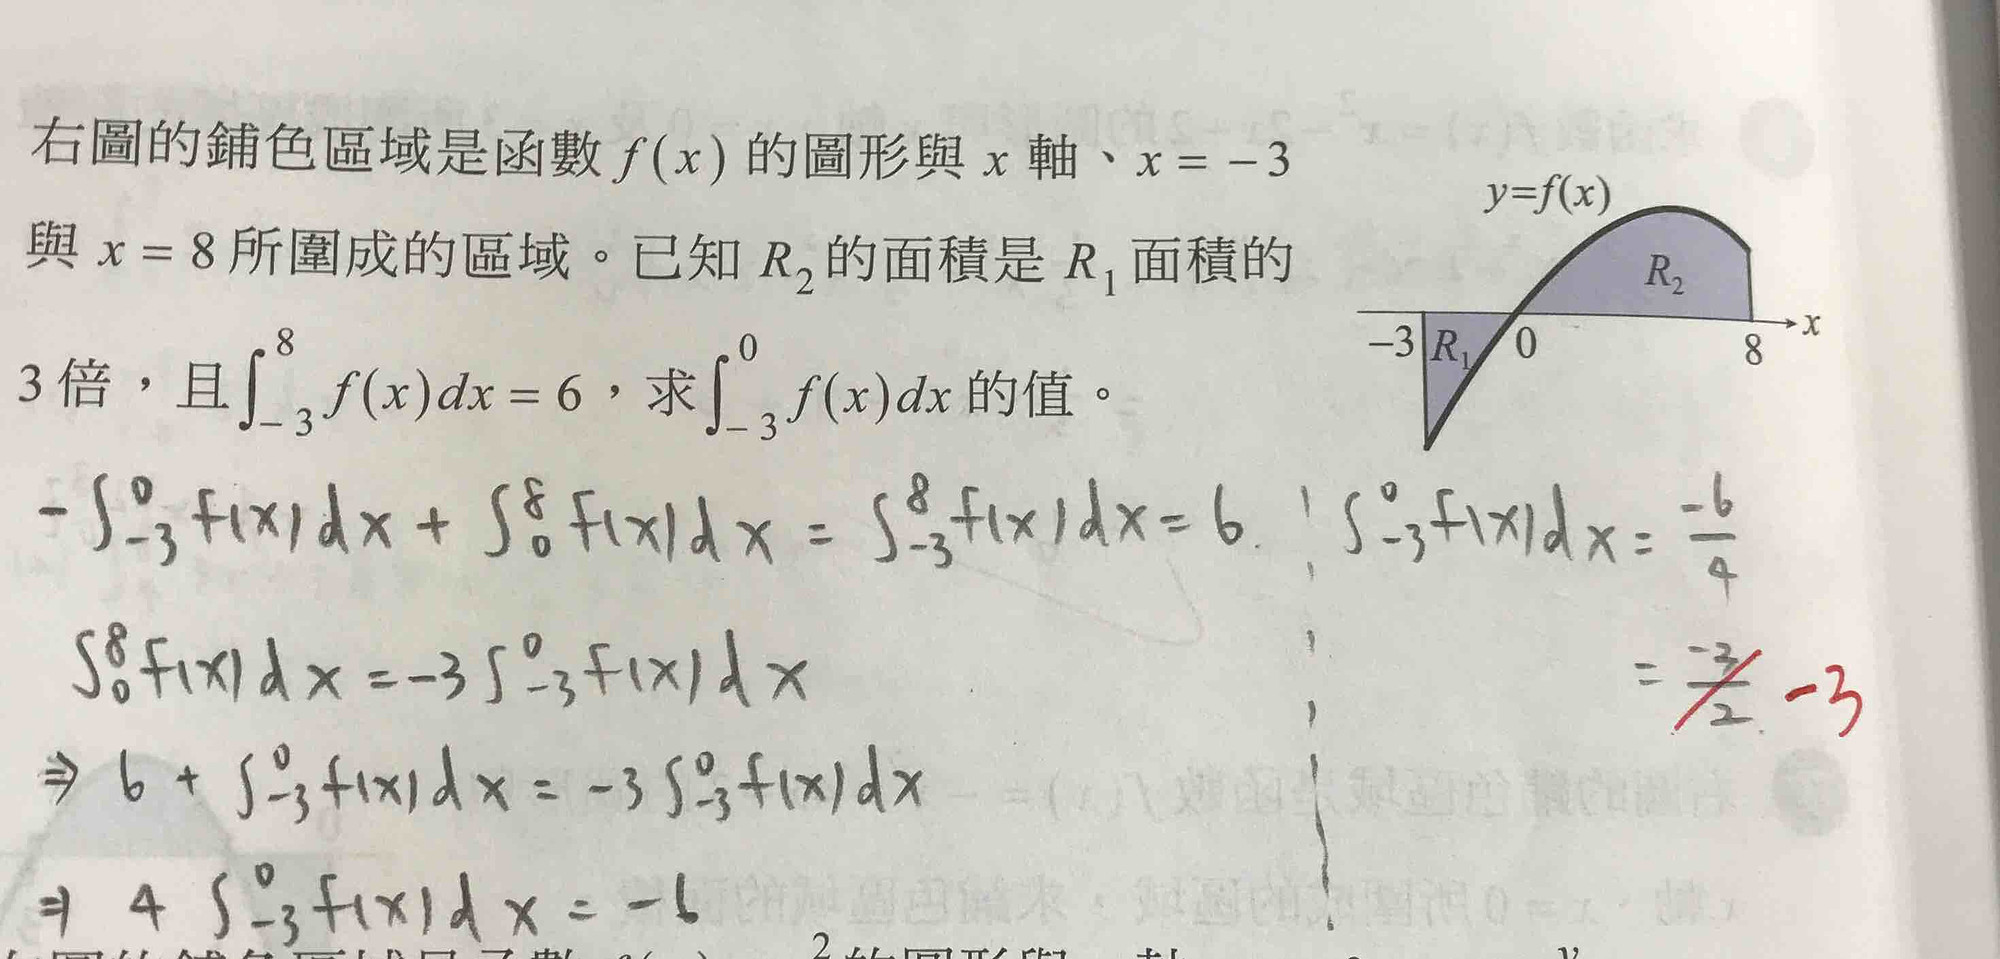 右圖的鋪色區域是函數 f(x) 的圖形與 x 軸、x = -3
與 x = 8 所圍成的區域。已知 R₂ 的面積是 R₁ 面積的
3 倍,且∫₋₃⁸ f(x)dx = 6,求∫₋₃⁰ f(x)dx 的值。
y=f(x)
R₂
-3 R₁ 0 8 x
-∫₋₃⁰ f(x)dx + ∫₀⁸ f(x)dx = ∫₋₃⁸ f(x)dx = 6.
∫₀⁸ f(x)dx = -3∫₋₃⁰ f(x)dx
⇒ 6 + ∫₋₃⁰ f(x)dx = -3∫₋₃⁰ f(x)dx
⇒ 4 ∫₋₃⁰ f(x)dx = -6
∫₋₃⁰ f(x)dx = -6/4
= -3/2 -3